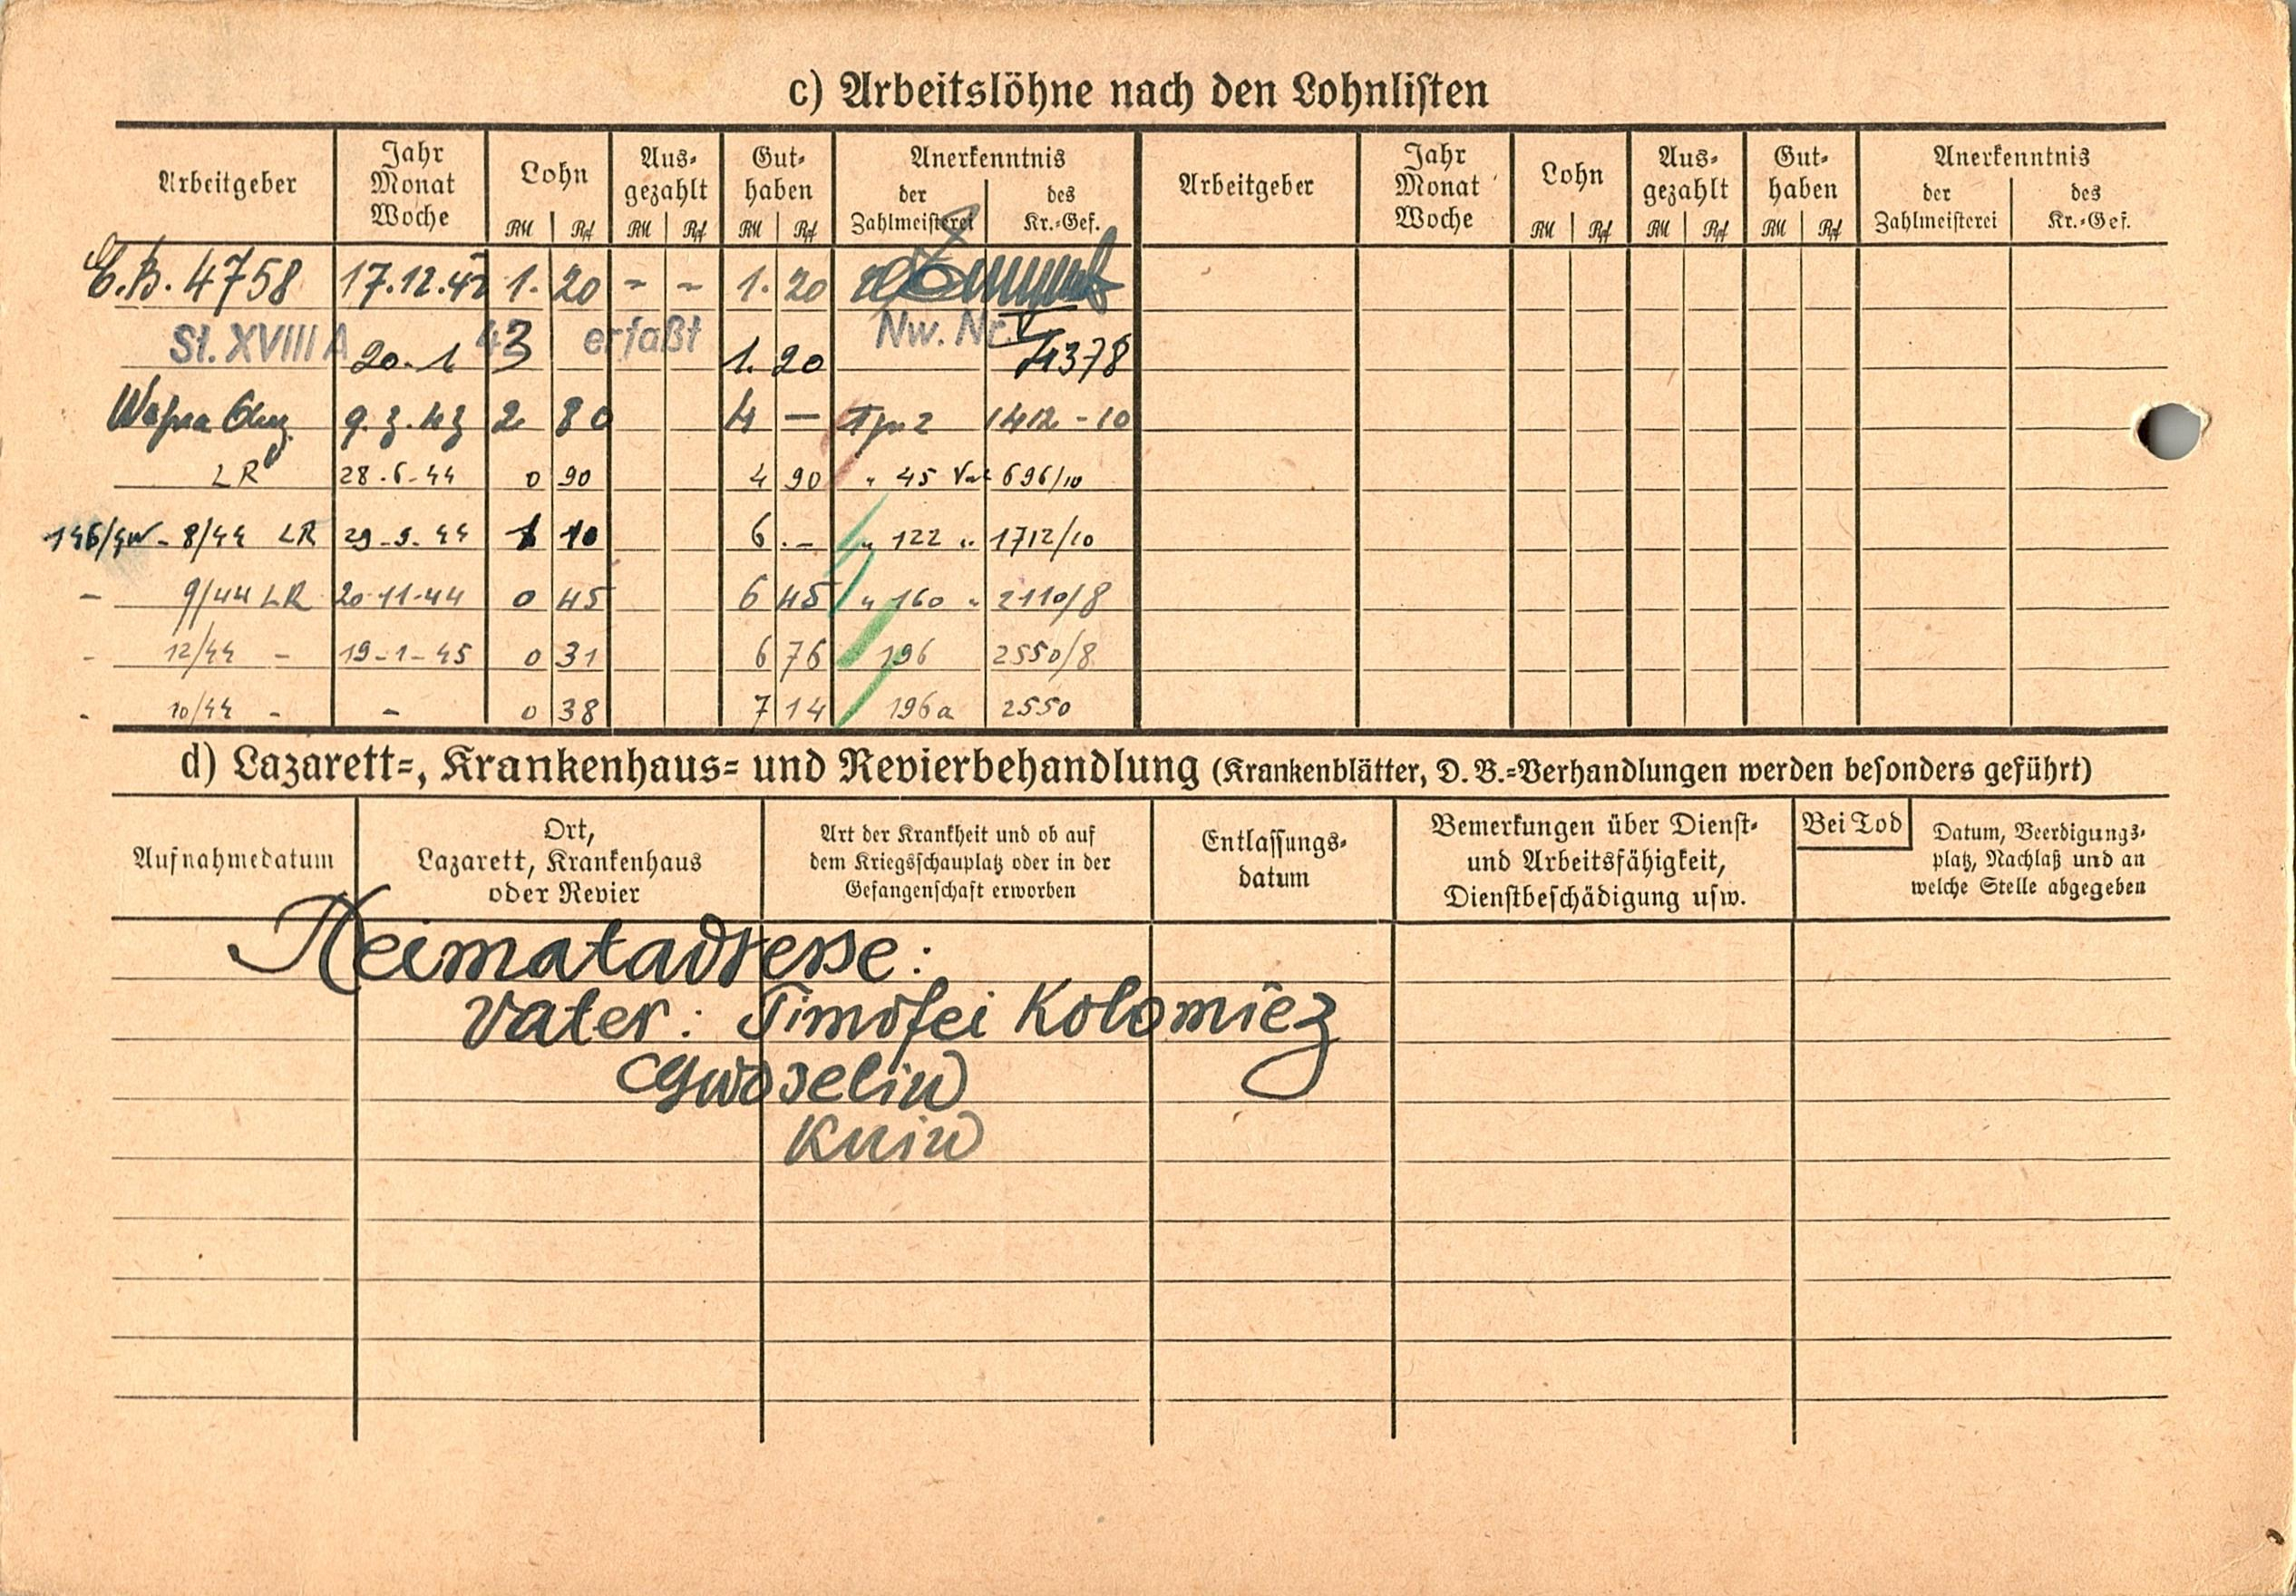 c) Arbeitslöhne nach den Lohnlisten
Arbeitgeber Jahr Monat Woche Lohn Aus- gezahlt Gut- haben Anerkenntnis Arbeitgeber Jahr Monat Woche Lohn Aus- gezahlt Gut- haben Anerkenntnis
der Zahlmeisterei des Kr.-Gef. der Zahlmeisterei des Kr.-Gef.
RM Rpf RM Rpf RM Rpf RM Rpf RM Rpf RM Rpf
E.B. 4758 17.12.42 1. 20 - - 1. 20
St. XVIII A 43 erfaßt Nw. Nr. V
20. 1 3 1. 20 4378
9. 3. 43 2 80 4 — 1412 - 10
LR 28.6.44 0 90 4 90 " 45 696/10
8/44 LR 29.9.44 1 10 6 . - " 122 " 1712/10
- 9/44 LR 20.11.44 0 45 6 45 " 160 " 2110/8
- 12/44 - 19-1-45 0 31 6 76 196 2550/8
- 10/44 - - 0 38 7 14 196a 2550
d) Lazarett-, Krankenhaus- und Revierbehandlung (Krankenblätter, D. B.-Verhandlungen werden besonders geführt)
Aufnahmedatum
Ort,
Lazarett, Krankenhaus
oder Revier
Art der Krankheit und ob auf
dem Kriegsschauplatz oder in der
Gefangenschaft erworben
Entlassungs-
datum
Bemerkungen über Dienst-
und Arbeitsfähigkeit,
Dienstbeschädigung usw.
Bei Tod
Datum, Beerdigungs-
platz, Nachlaß und an
welche Stelle abgegeben
Heimatadresse:
Vater: Timofei Kolomiez
Gwoseliw
Kuiw